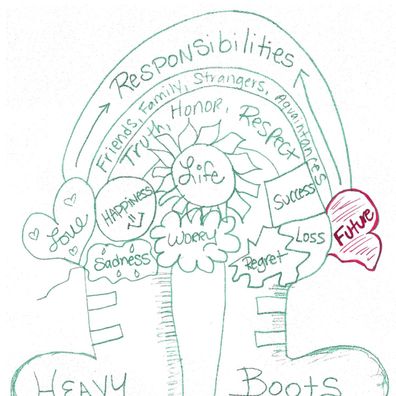 RESPONSIBILITIES
Friends, Family, Strangers, Aquaintances
Truth, Honor, Respect
Life
Love
HAPPINESS
Success
Future
Worry
Loss
Sadness
Regret
HEAVY BOOTS